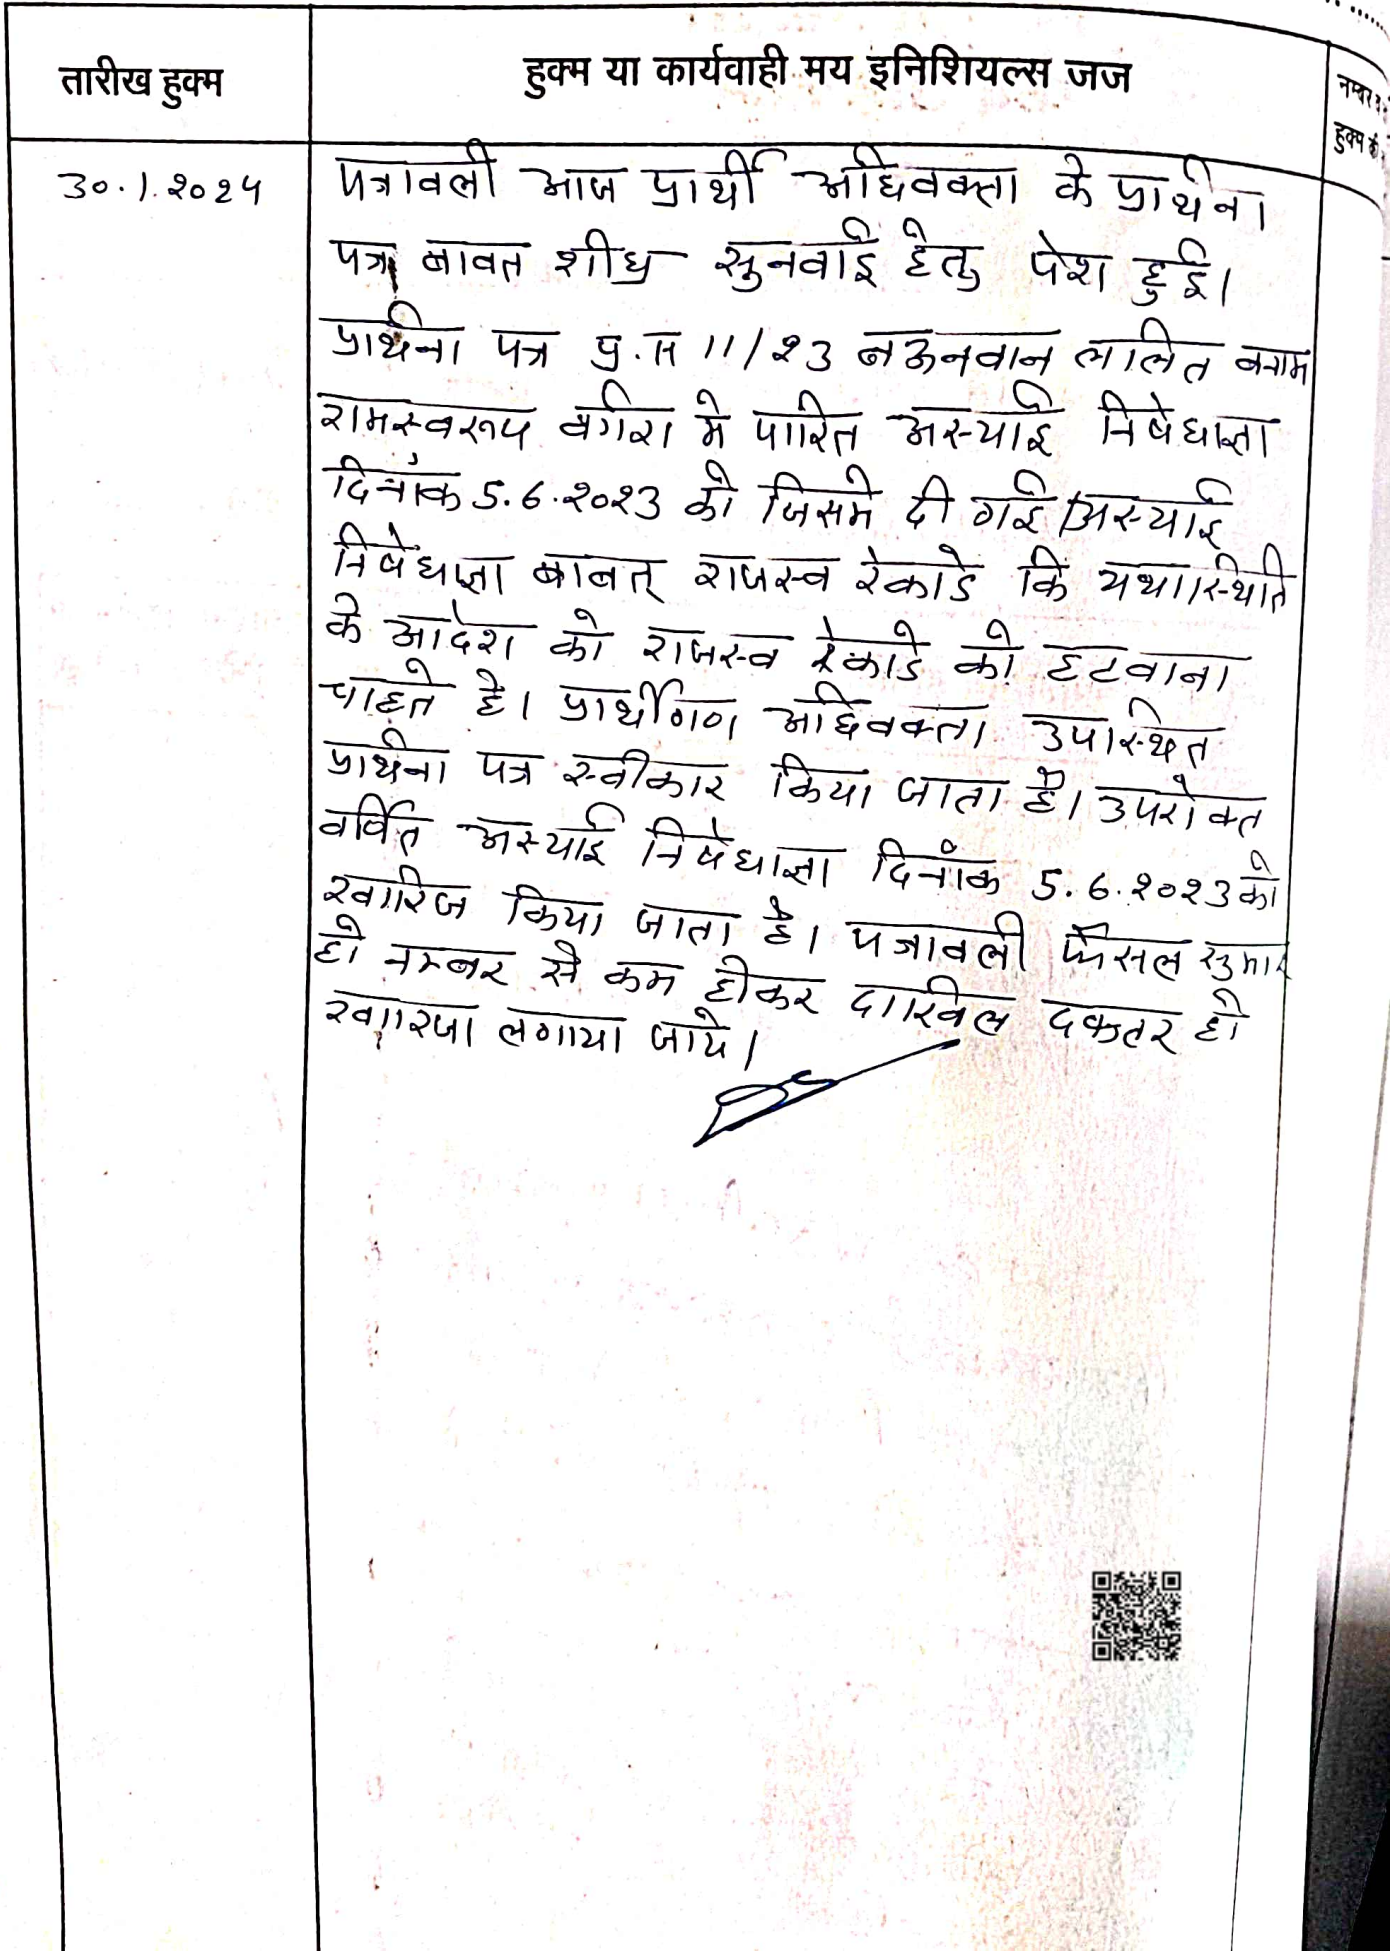 तारीख हुक्म
हुक्म या कार्यवाही मय इनिशियल्स जज
नम्बर
हुक्म की
30.1.2024
पत्रावली आज प्रार्थी अधिवक्ता के प्रार्थना
पत्र बावत शीघ्र सुनवाई हेतु पेश हुई।
प्रार्थना पत्र प्र.स 11/23 बऊनवान ललित बनाम
रामस्वरूप वगेरा मे पारित अस्थाई निषेधाज्ञा
दिनांक 5.6.2023 को जिसमे दी गई अस्थाई
निषेधाज्ञा बाबत् राजस्व रेकार्ड कि यथास्थिति
के आदेश को राजस्व रेकार्ड को हटवाना
चाहते है। प्रार्थीगण अधिवक्ता उपस्थित
प्रार्थना पत्र स्वीकार किया जाता है। उपरोक्त
वर्णित अस्थाई निषेधाज्ञा दिनांक 5.6.2023 को
खारिज किया जाता है। पत्रावली फैसल सुमार
हो नम्बर से कम होकर दाखिल दफ्तर हो
खारजा लगाया जाये।